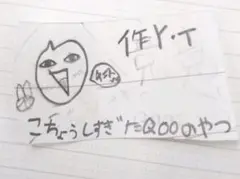 作Y.T
こちょうしすぎたQooのやつ